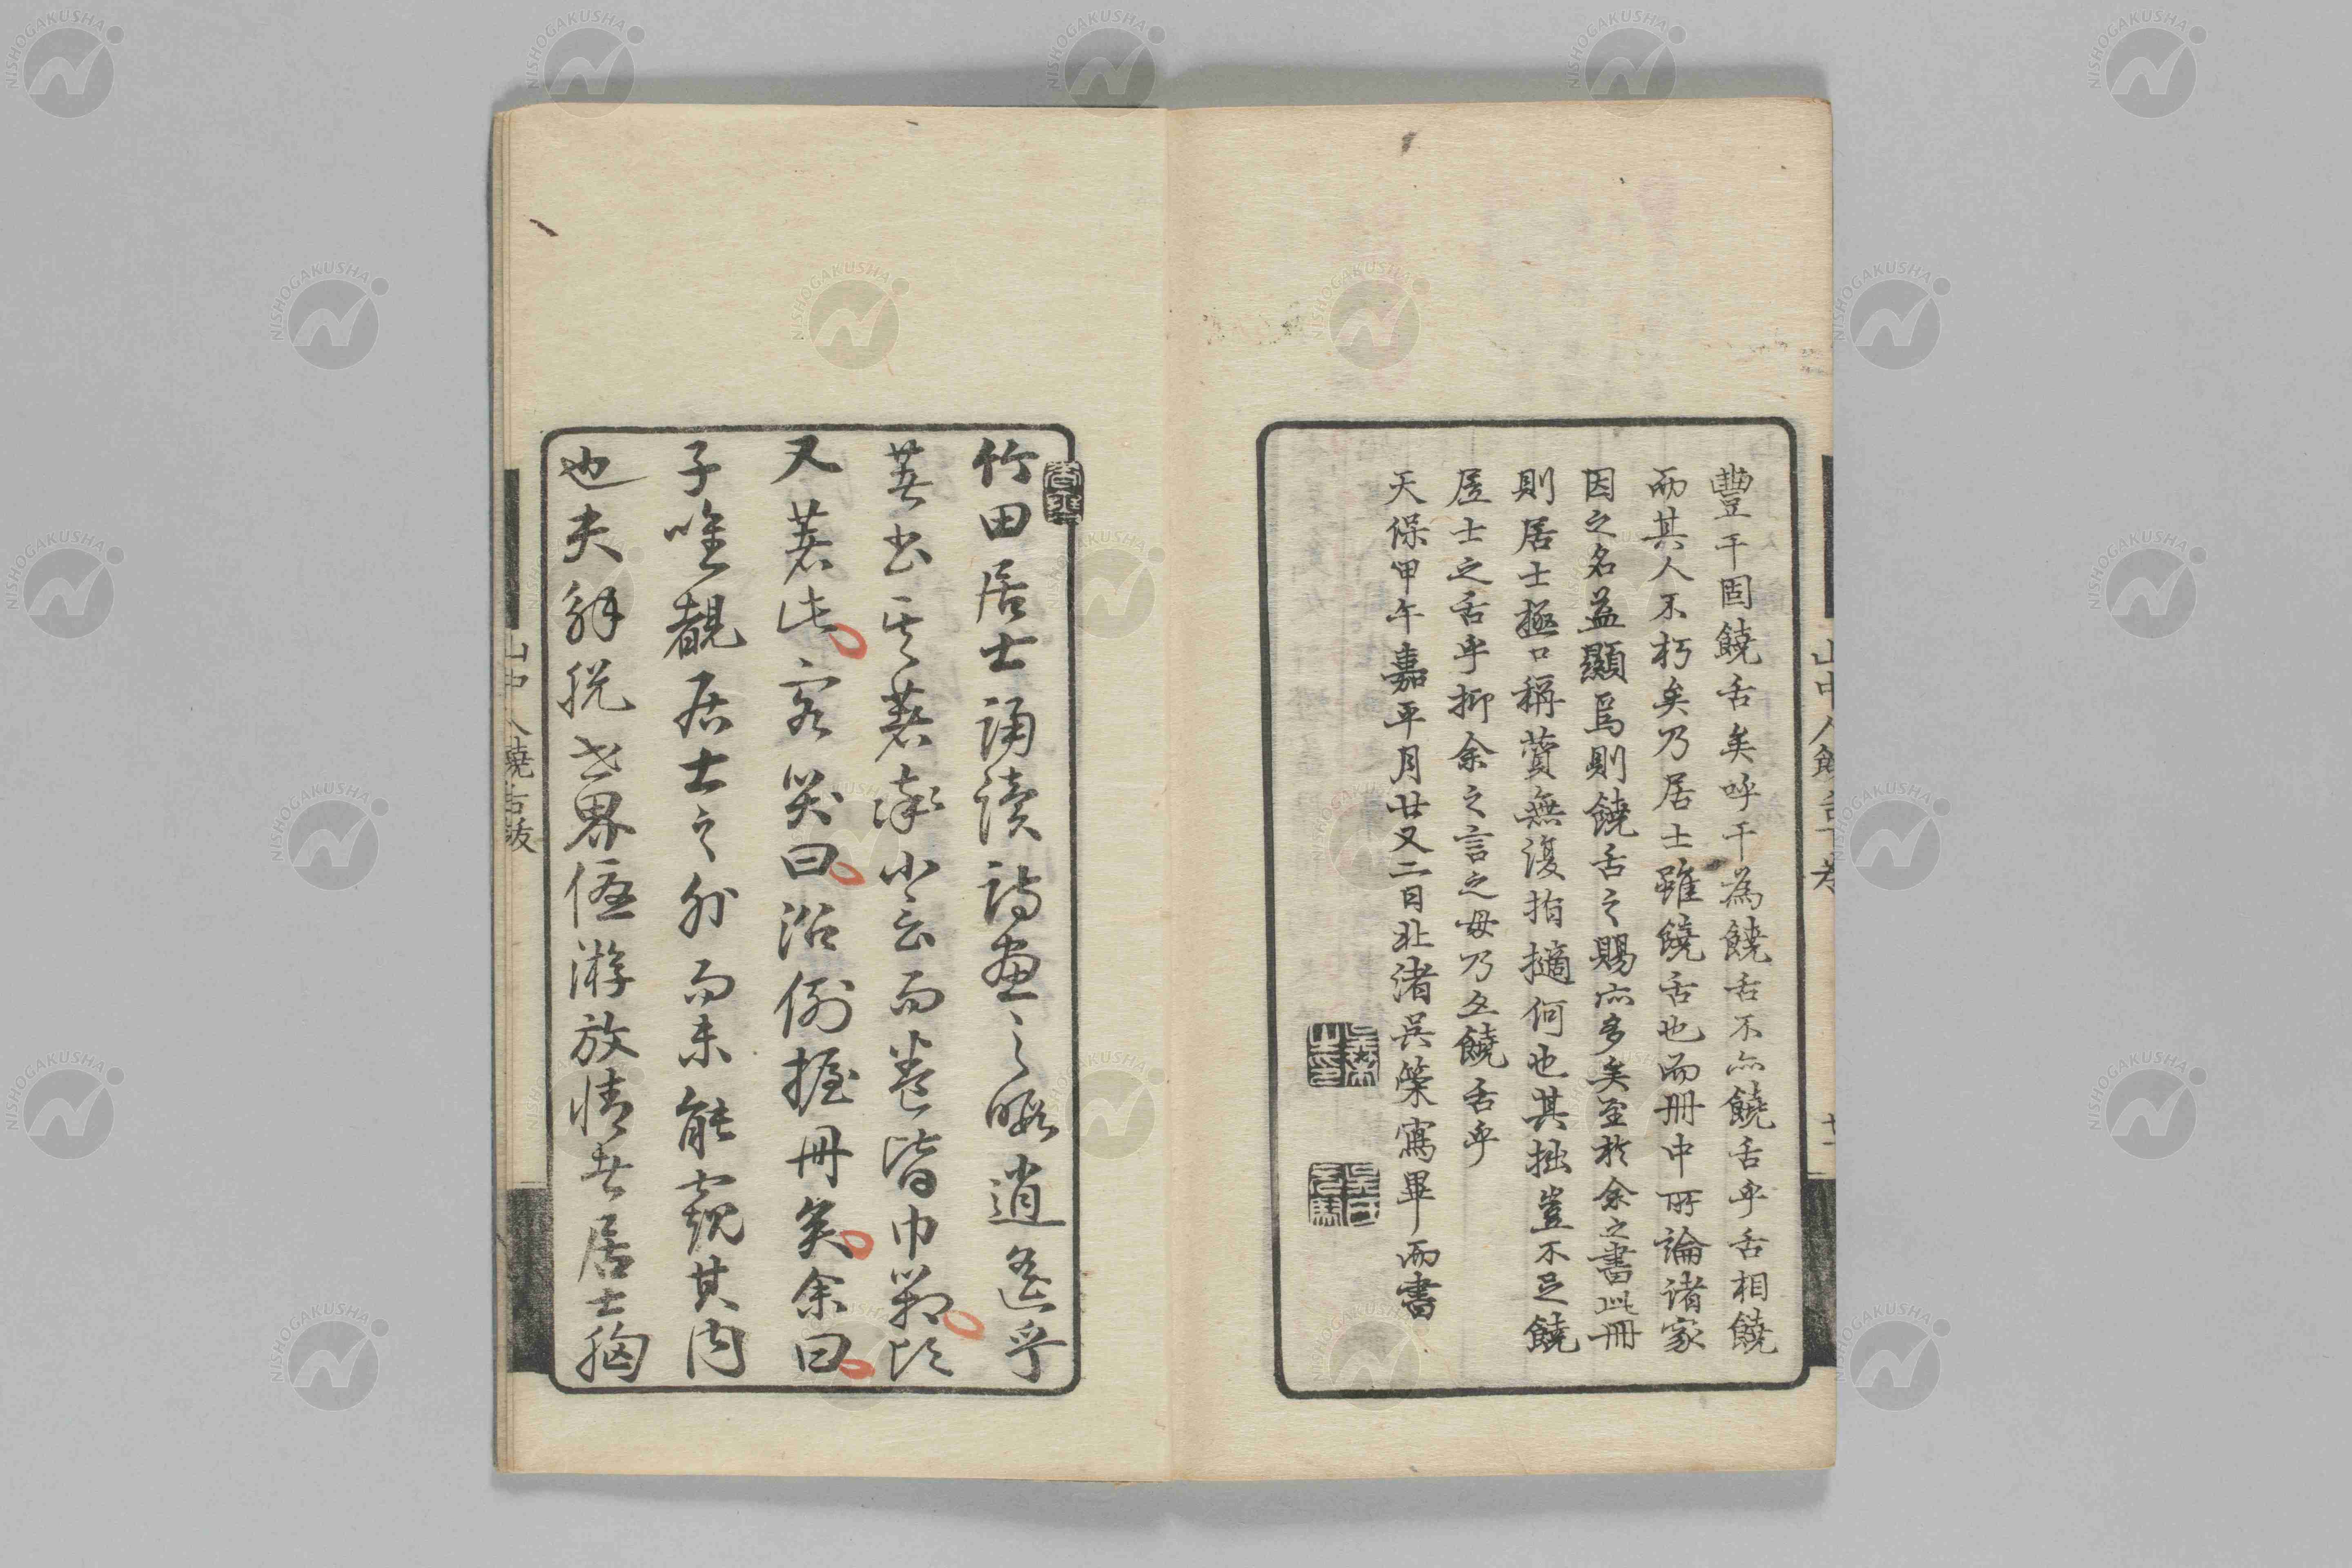 豐干固饒舌矣呼干為饒舌不亦饒舌乎舌相饒
而其人不朽矣乃居士雖饒舌也而冊中所論諸家
因之名益顯焉則饒舌之賜亦多矣至於余之書此冊
則居士極口稱贊無復指擿何也其拙豈不足饒
居士之舌乎抑余之言之毋乃太饒舌乎
天保甲午嘉平月廿又二日北渚吳策寫畢而書
山中人饒舌下卷
十一
竹田居士誦讀詩畫之暇逍遙乎
又著此客笑曰沿例握冊矣余曰
子唯觀居士之外而未能窺其內
也夫解脫世界傲游放情者居士胸
山中人饒舌跋
NISHOGAKUSHA